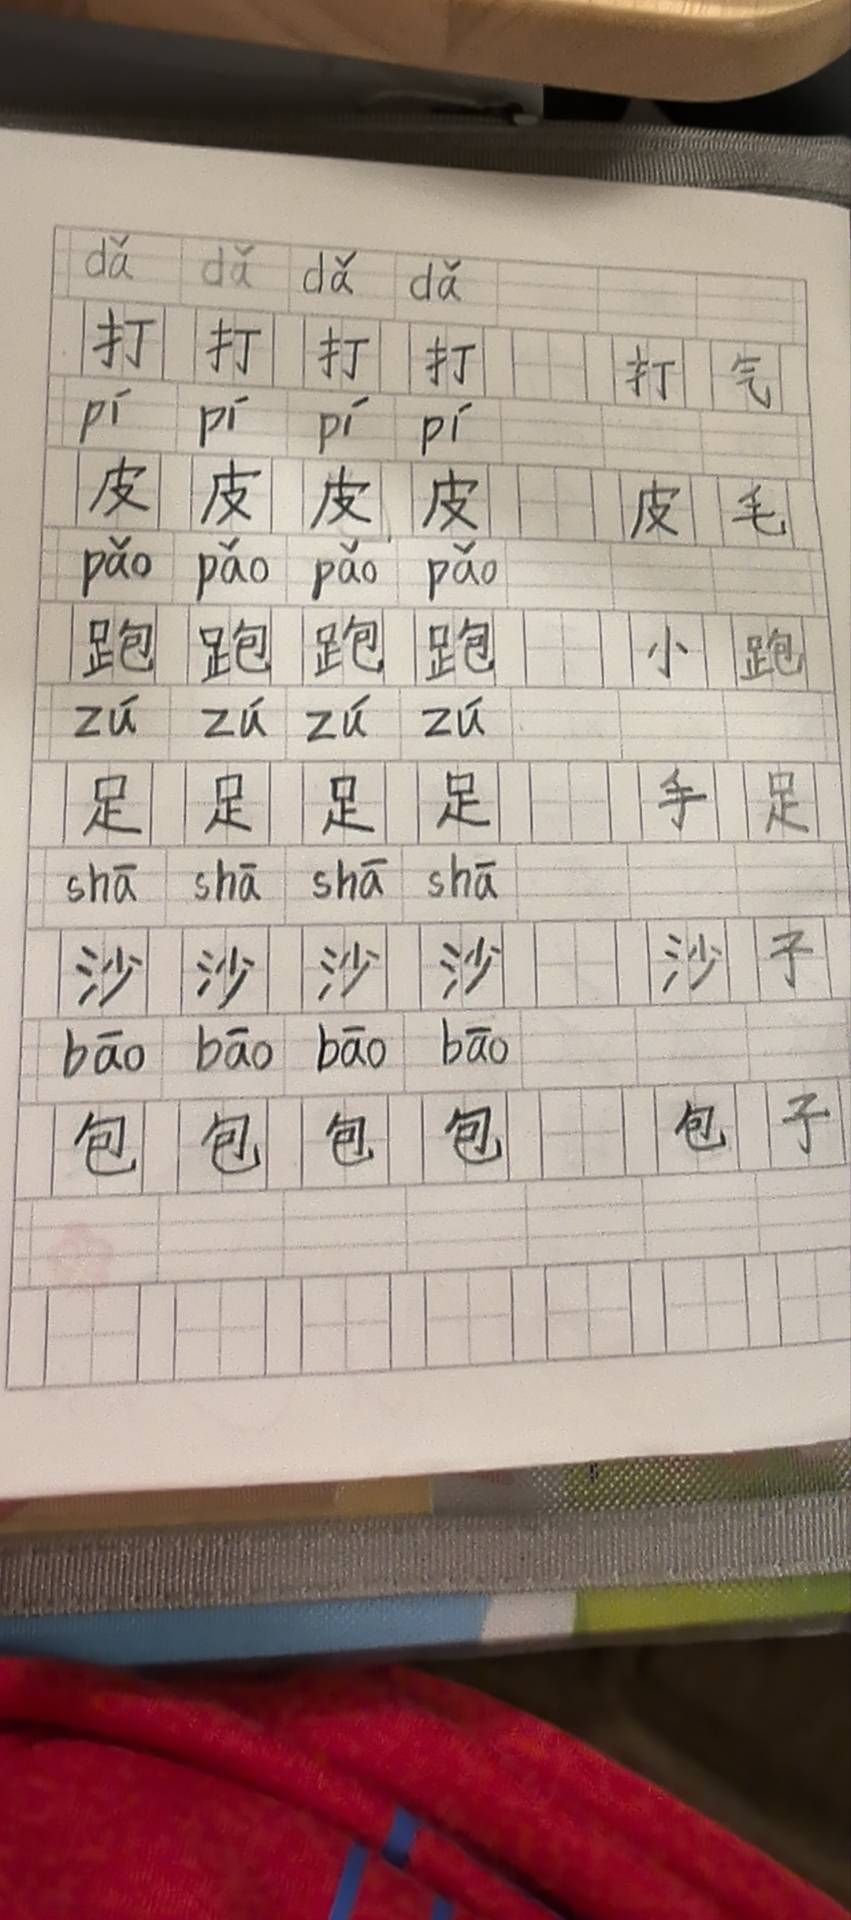 dǎ dǎ dǎ dǎ
打 打 打 打 打 气
pí pí pí pí
皮 皮 皮 皮 皮 毛
pǎo pǎo pǎo pǎo
跑 跑 跑 跑 小 跑
zú zú zú zú
足 足 足 足 手 足
shā shā shā shā
沙 沙 沙 沙 沙 子
bāo bāo bāo bāo
包 包 包 包 包 子